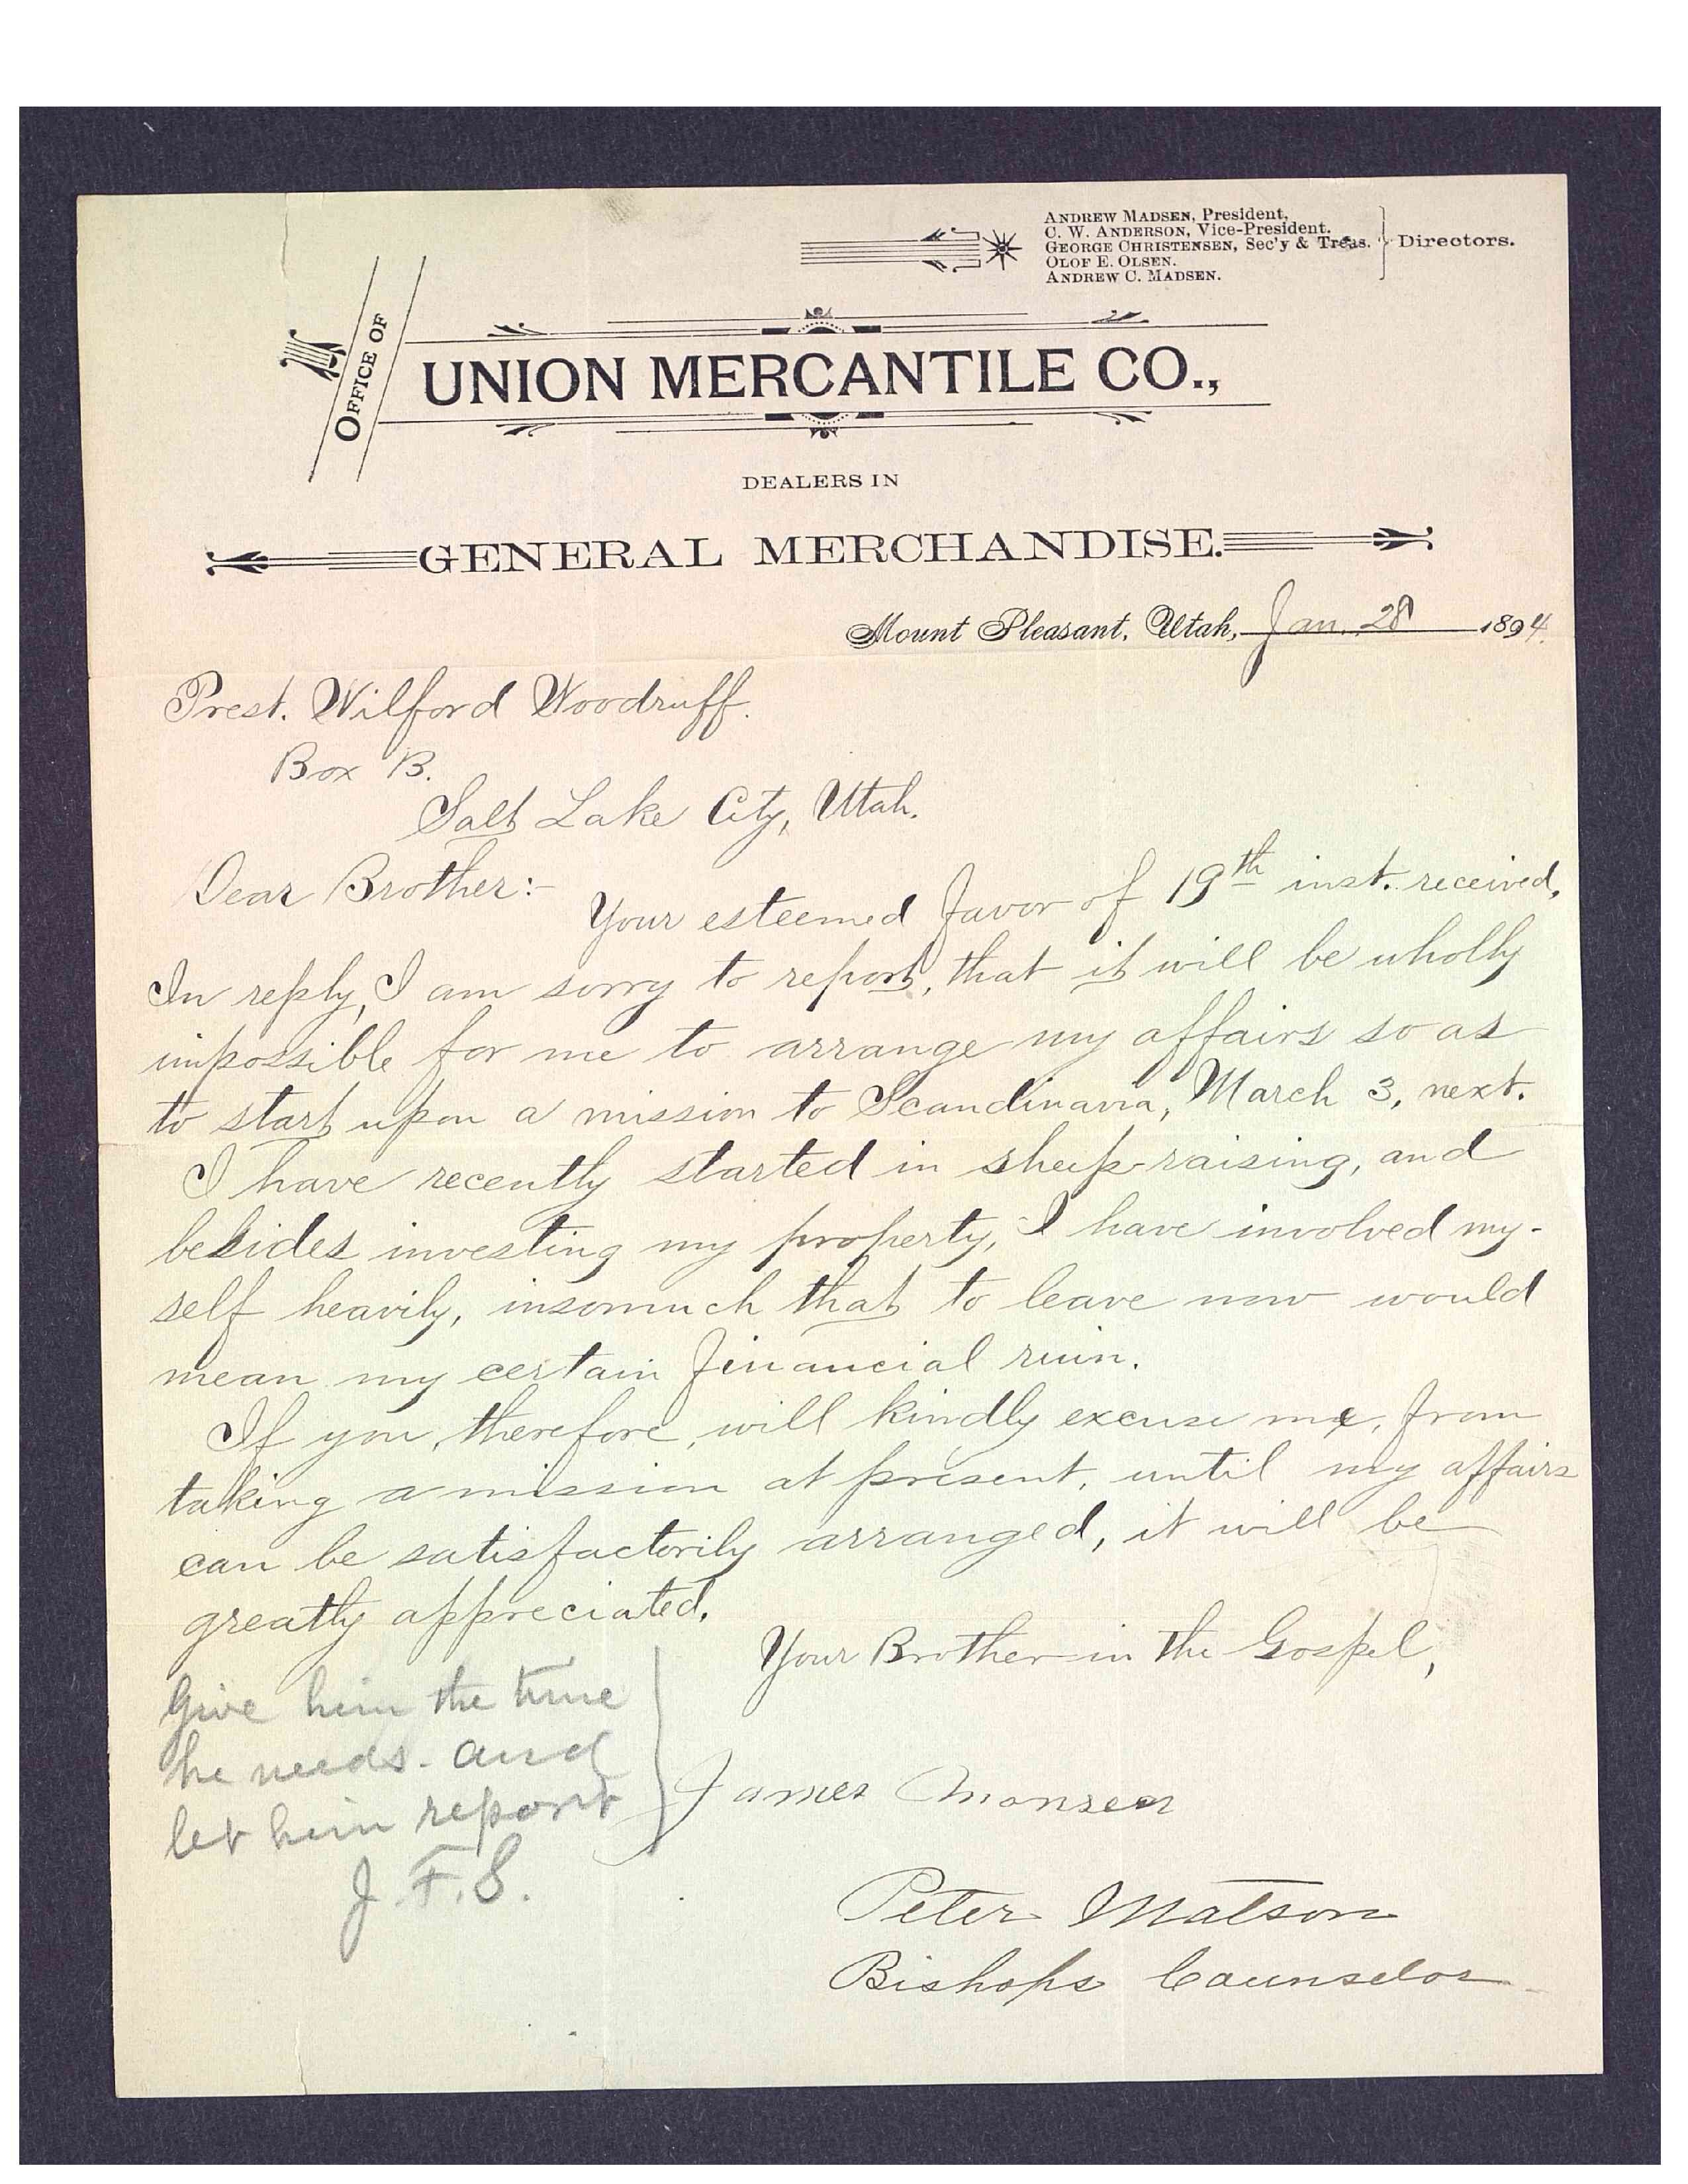 ANDREW MADSEN, President,
C. W. ANDERSON, Vice-President.
GEORGE CHRISTENSEN, Sec'y & Treas.
OLOF E. OLSEN.
ANDREW C. MADSEN.
Directors.
OFFICE OF
UNION MERCANTILE CO.,
DEALERS IN
GENERAL MERCHANDISE.
Mount Pleasant, Utah, Jan. 28 1894.
Prest. Wilford Woodruff.
Box B.
Salt Lake City, Utah.
Dear Brother:-
Your esteemed favor of 19th inst. received.
In reply, I am sorry to report, that it will be wholly
impossible for me to arrange my affairs so as
to start upon a mission to Scandinavia, March 3, next.
I have recently started in sheep-raising, and
besides investing my property, I have involved my-
self heavily, insomuch that to leave now would
mean my certain financial ruin.
If you, therefore, will kindly excuse me, from
taking a mission at present, until my affairs
can be satisfactorily arranged, it will be
greatly appreciated.
Your Brother in the Gospel,
James Monsen
Give him the time
he needs. and
let him report
J. F. S.
Peter Matson
Bishops Counselor